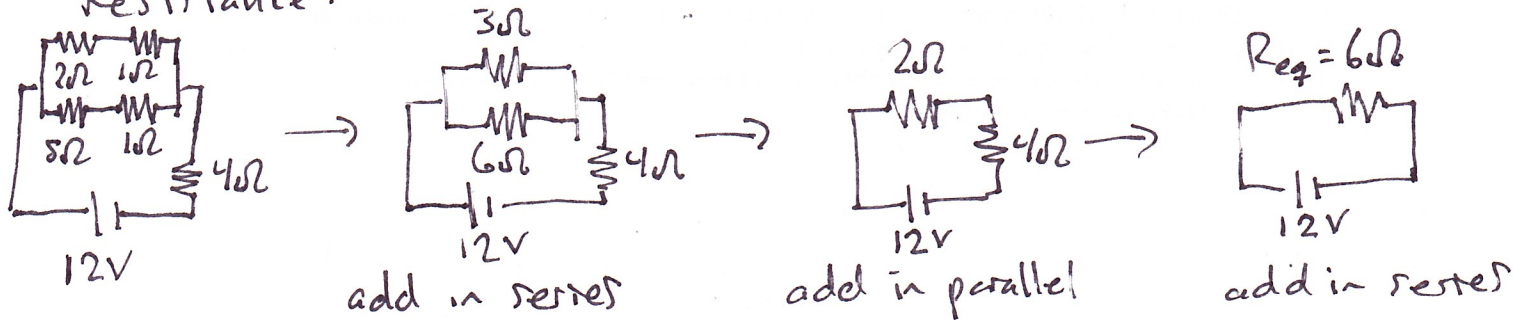 resistance.
2Ω 1Ω
5Ω 1Ω
4Ω
12V
3Ω
6Ω
4Ω
12V
add in series
2Ω
4Ω
12V
add in parallel
Req = 6Ω
12V
add in series